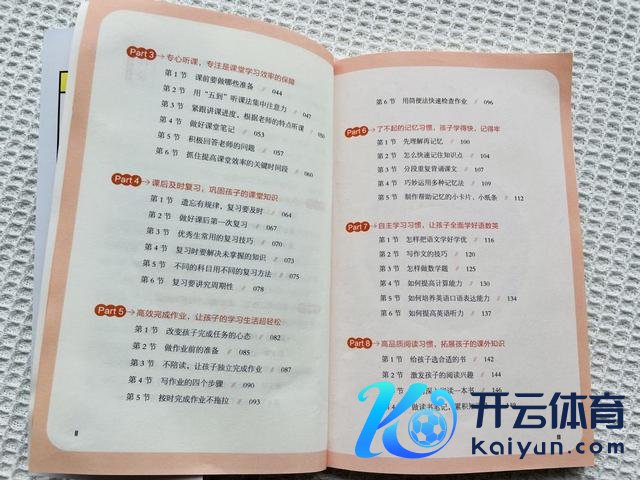 Part 3 专心听课，专注是课堂学习效率的保障
第1节 课前要做哪些准备 // 044
第2节 用“五到”听课法集中注意力 // 047
第3节 紧跟讲课进度，根据老师的特点听课 // 050
第4节 做好课堂笔记 // 053
第5节 积极回答老师的问题 // 057
第6节 抓住提高课堂效率的关键时间段 // 060
Part 4 课后及时复习，巩固孩子的课堂知识
第1节 遗忘有规律，复习要及时 // 064
第2节 做好课后第一次复习 // 067
第3节 优秀生常用的复习技巧 // 070
第4节 复习时要解决未掌握的知识 // 073
第5节 不同的科目用不同的复习方法 // 075
第6节 复习要讲究周期性 // 078
Part 5 高效完成作业，让孩子的学习生活超轻松
第1节 改变孩子完成任务的心态 // 082
第2节 做作业前的准备 // 085
第3节 不陪读，让孩子独立完成作业 // 087
第4节 写作业的四个步骤 // 090
第5节 按时完成作业不拖拉 // 093
II
第6节 用简便法快速检查作业 // 096
Part 6 了不起的记忆习惯，孩子学得快，记得牢
第1节 先理解再记忆 // 100
第2节 怎么快速记住知识点 // 104
第3节 分段重复背诵课文 // 106
第4节 巧妙运用多种记忆法 // 109
第5节 制作帮助记忆的小卡片、小纸条 // 112
Part 7 自主学习习惯，让孩子全面学好语数英
第1节 怎样把语文学好学优 // 116
第2节 写作文的技巧 // 120
第3节 怎样做数学题 // 125
第4节 如何提高计算能力 // 130
第5节 如何培养英语口语表达能力 // 134
第6节 如何提升英语听力 // 137
Part 8 高品质阅读习惯，拓展孩子的课外知识
第1节 给孩子选合适的书 // 142
第2节 激发孩子的阅读兴趣 // 144
第3节 深入阅读一本书 // 146
第4节 做读书笔记，累积 149
开云体育
kaiyun.com